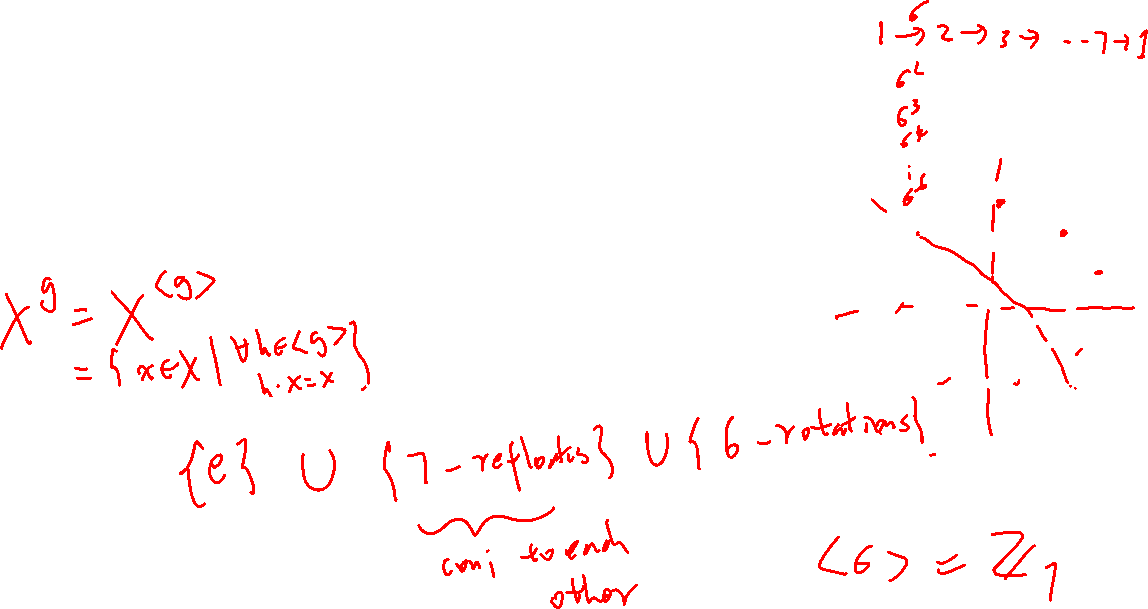 1 →σ 2 → 3 → ... 7 → 1
σ²
σ³
σ⁴
⋮
σ⁶
X^g = X^<g>
= { x ∈ X | ∀h ∈ <g>
h · x = x }
{e} ∪ {7 - reflectis} ∪ {6 - rotations}
conj to each
other
<σ> = ℤ₇